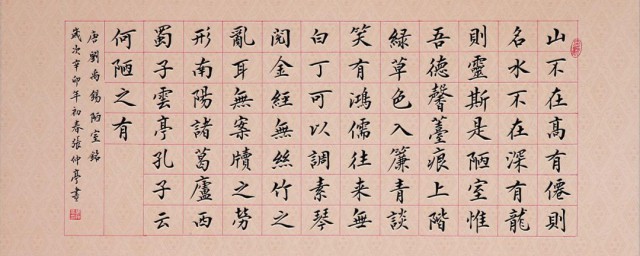 山不在高有僊則
名水不在深有龍
則靈斯是陋室惟
吾德馨薹痕上階
綠草色入簾青談
笑有鴻儒往來無
白丁可以調素琴
閱金經無絲竹之
亂耳無案牘之勞
形南陽諸葛廬西
蜀子雲亭孔子云
何陋之有
唐劉禹錫陋室銘
歲次辛卯年初春張仲亭書